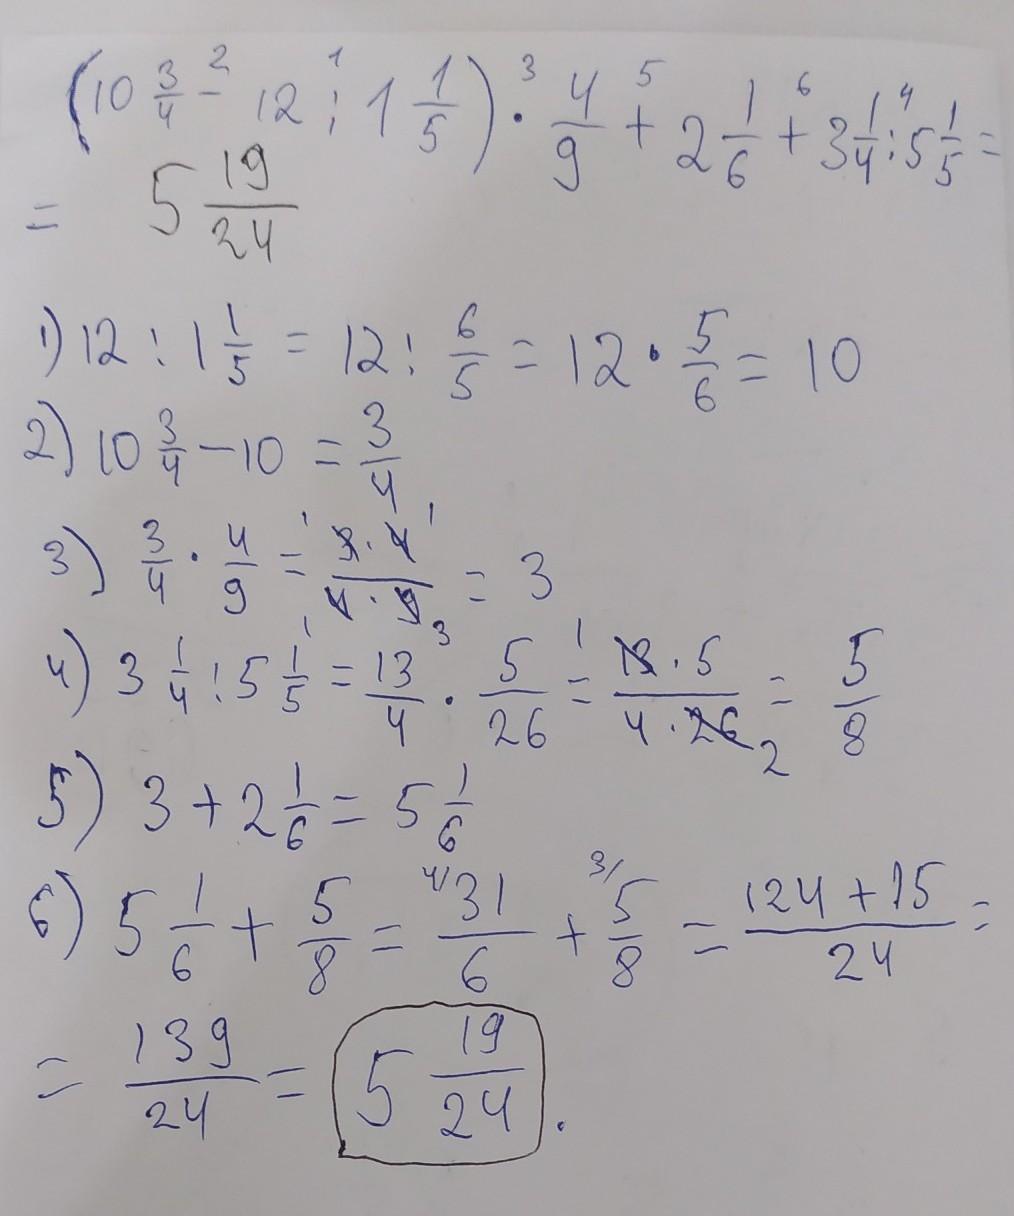 (10 3/4 -² 12 :¹ 1 1/5) ·³ 4/9 +⁵ 2 1/6 +⁶ 3 1/4 :⁴ 5 1/5 =
= 5 19/24
1) 12 : 1 1/5 = 12 : 6/5 = 12 · 5/6 = 10
2) 10 3/4 - 10 = 3/4
3) 3/4 · 4/9 = ¹3 · 4¹/₁4 · 9₃ = 3
4) 3 1/4 : 5 1/5 = 13/4 · 5/26 = ¹13 · 5/4 · 26₂ = 5/8
5) 3 + 2 1/6 = 5 1/6
6) 5 1/6 + 5/8 = ⁴⁾31/6 + ³⁾5/8 = 124 + 15/24 =
= 139/24 = 5 19/24.